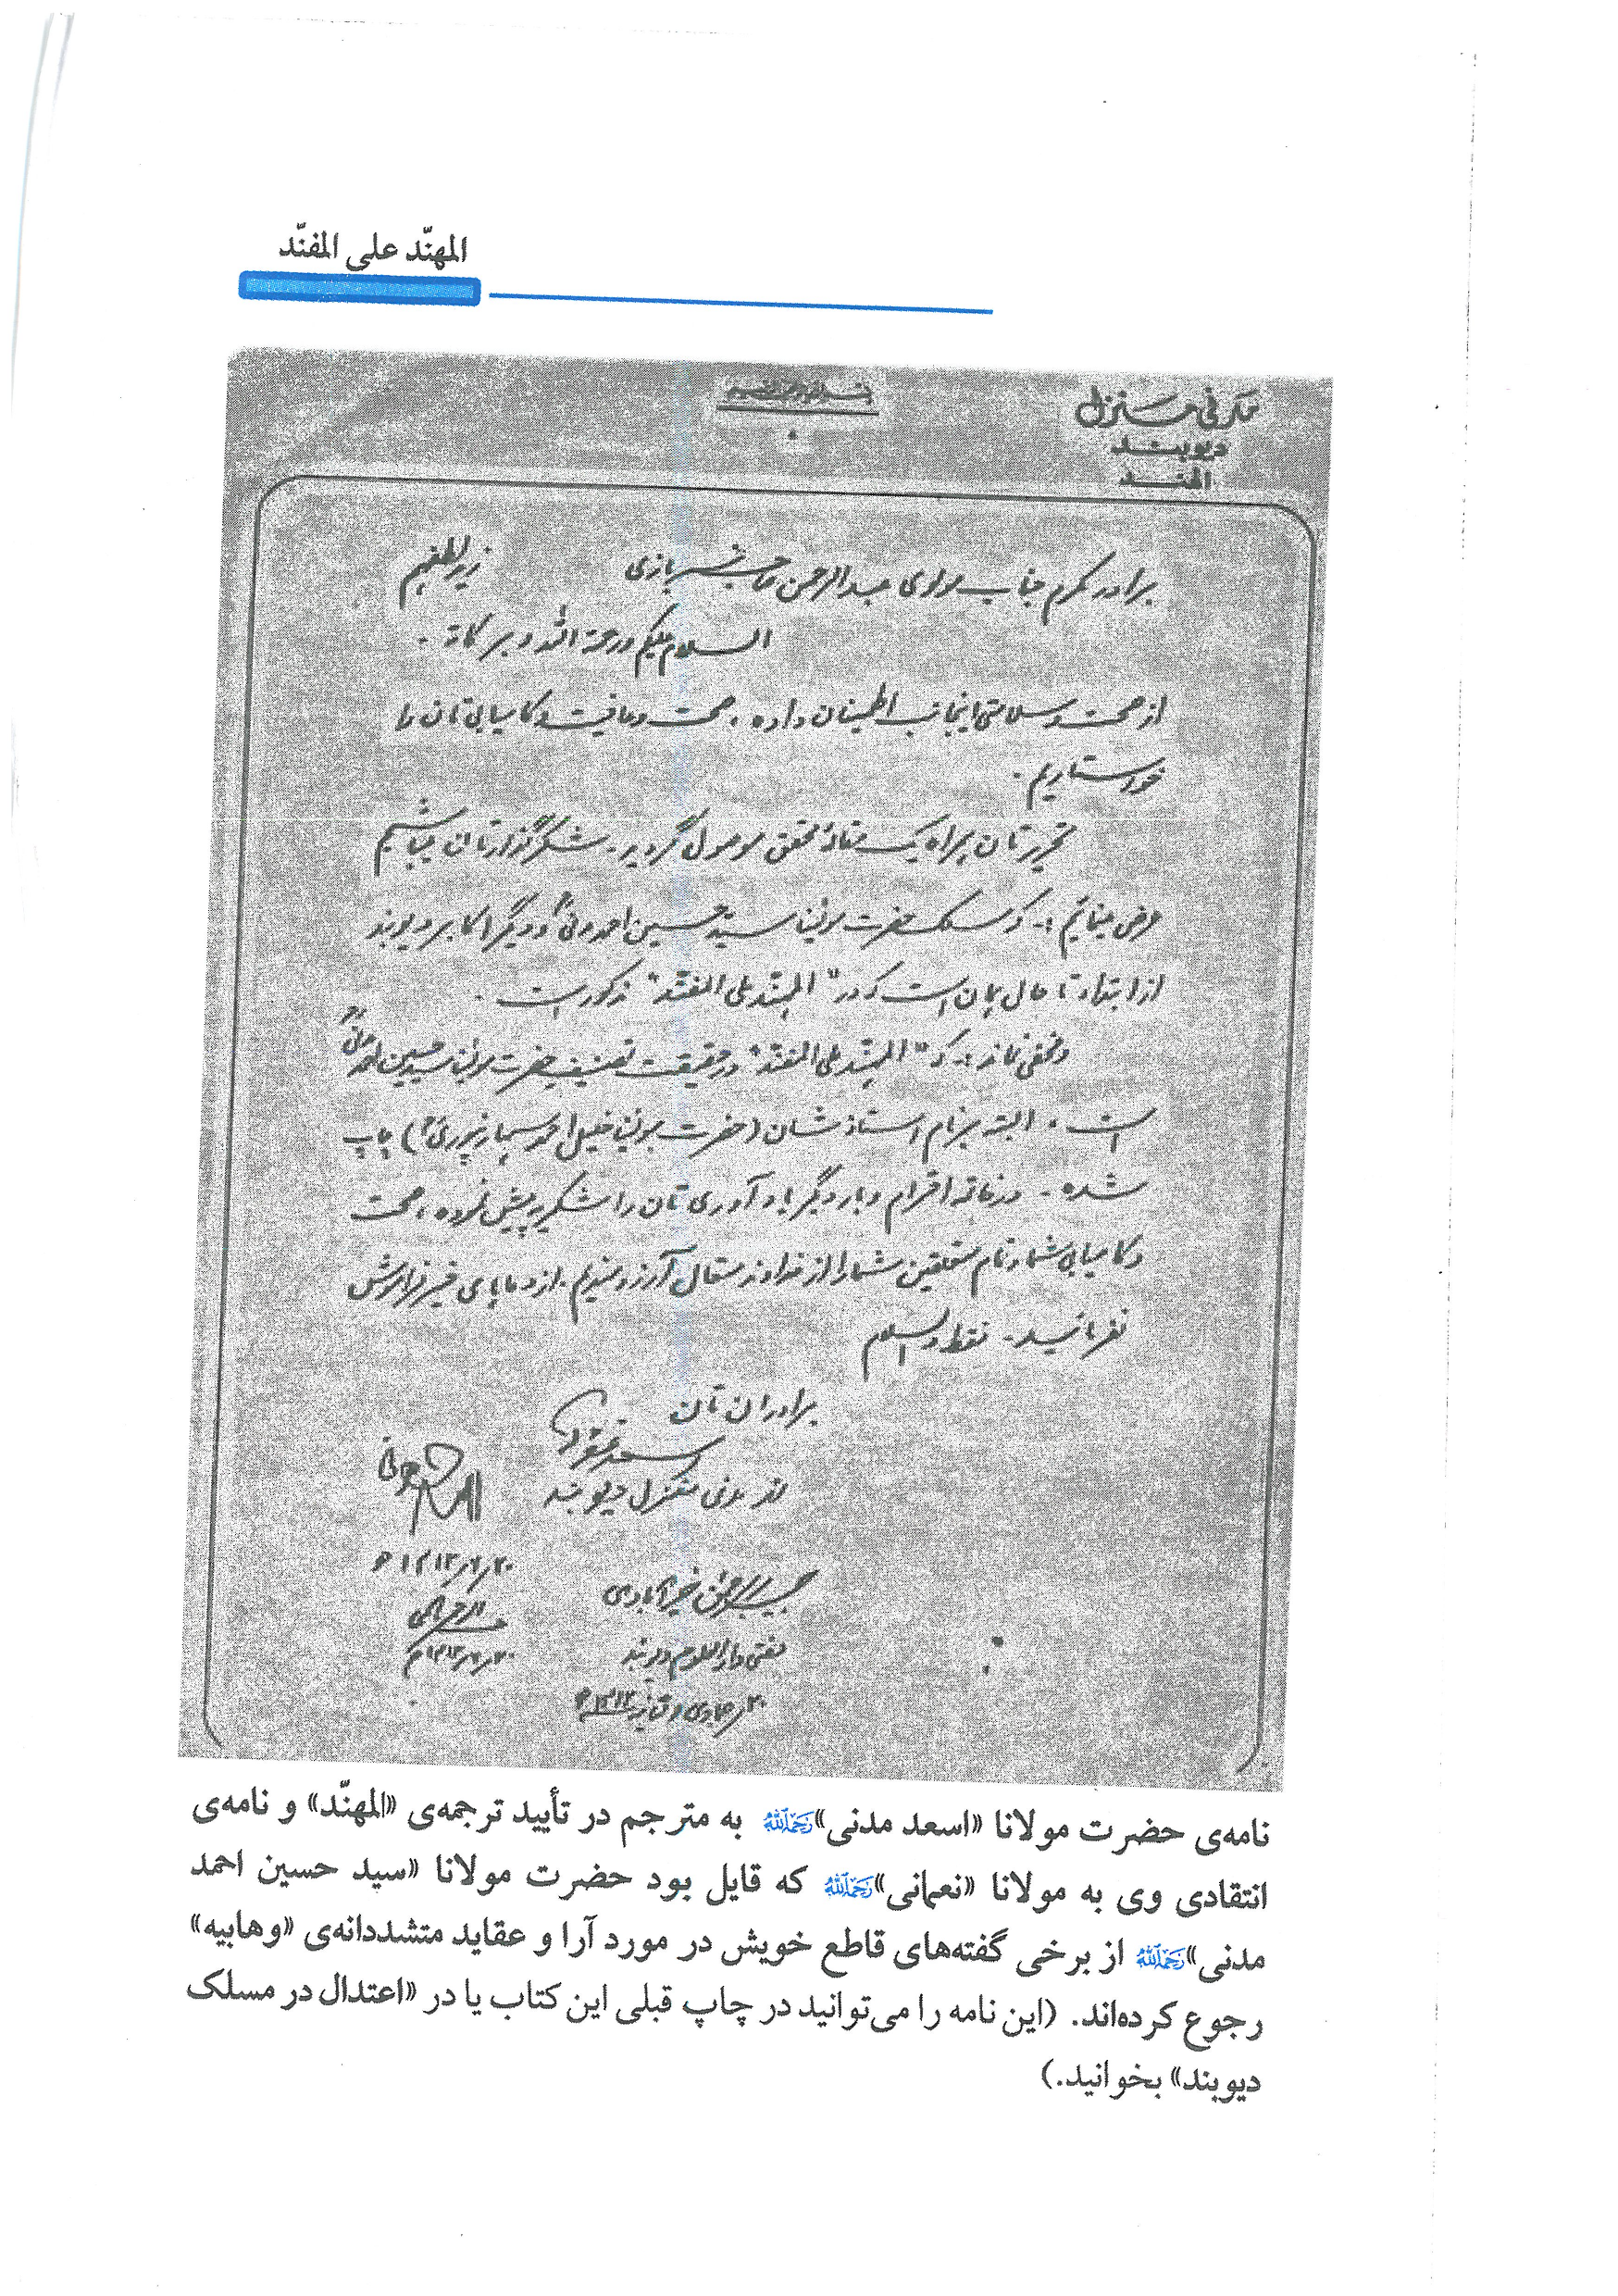 المهنّد علی المفنّد
بسم الله الرحمن الرحیم
مدنی منزل
دیوبند
الهند
برادر مکرم جناب مولوی عبدالرحمن صاحب سربازی زید لطفہم
السلام علیکم ورحمۃ اللہ وبرکاتہ .
از صحت و سلامتی اینجانب اطمینان داده ، صحت و عافیت و کامیابی تان را
خواستاریم .
تحریر تان بهراه یک مقالۂ محقق موصول گردید . شکرگذار تان میباشیم
عرض مینمائیم :- که مسلک حضرت مولینا سید حسین احمد مدنیؒ و دیگر اکابر دیوبند
از ابتداء تا حال همان است که در "المہند علی المفند" مذکور است .
و مخفی نماند :- که "المہند علی المفند" در حقیقت تصنیف حضرت مولینا سید حسین احمد مدنیؒ
است . البته بنام استاذ شان (حضرت مولینا خلیل احمد سہارنپوریؒ) چاپ
شده - در خاتمه احترام و بار دیگر یاد آوری تان را شکریه پیش نموده ، صحت
و کامیابی شما و تمام متعلقین شما را از خداوند متعال آرزومندیم . از دعاہای خیر فراموش
نفرمائید - فقط والسلام
برادران تان
از مدنی منزل دیوبند
حبیب الرحمن خیرآبادی
مفتی دارالعلوم دیوبند
نامه‌ی حضرت مولانا «اسعد مدنی» رحمه‌الله به مترجم در تأیید ترجمه‌ی «المهنّد» و نامه‌ی
انتقادی وی به مولانا «نعمانی» رحمه‌الله که قایل بود حضرت مولانا «سید حسین احمد
مدنی» رحمه‌الله از برخی گفته‌های قاطع خویش در مورد آرا و عقاید متشددانه‌ی «وهابیه»
رجوع کرده‌اند. (این نامه را می‌توانید در چاپ قبلی این کتاب یا در «اعتدال در مسلک
دیوبند» بخوانید.)